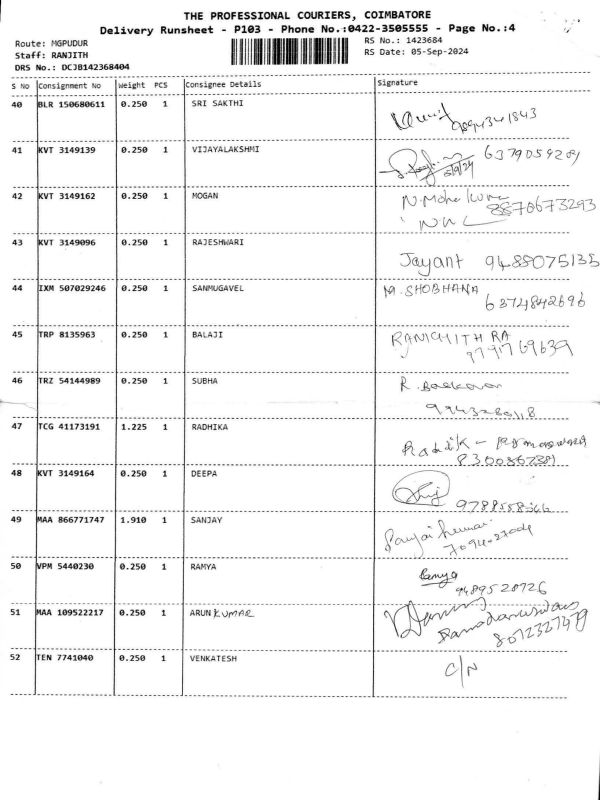 THE PROFESSIONAL COURIERS, COIMBATORE
Delivery Runsheet - P103 - Phone No.:0422-3505555 - Page No.:4
Route: MGPUDUR RS No.: 1423684
Staff: RANJITH RS Date: 05-Sep-2024
DRS No.: DCJB142368404
S No Consignment No Weight PCS Consignee Details Signature
40 BLR 150680611 0.250 1 SRI SAKTHI
41 KVT 3149139 0.250 1 VIJAYALAKSHMI 6379059289
5/9/24
42 KVT 3149162 0.250 1 MOGAN N. Moha Kumar
8870673293
43 KVT 3149096 0.250 1 RAJESHWARI
Jayant 9488075135
44 IXM 507029246 0.250 1 SANMUGAVEL M. SHOBHANA
6374842696
45 TRP 8135963 0.250 1 BALAJI RANICHITH RA
9791769639
46 TRZ 54144989 0.250 1 SUBHA R. Baskaran
47 TCG 41173191 1.225 1 RADHIKA
Radik -
8300867381
48 KVT 3149164 0.250 1 DEEPA
49 MAA 866771747 1.910 1 SANJAY
50 VPM 5440230 0.250 1 RAMYA Ramya
9489520726
51 MAA 109522217 0.250 1 ARUN KUMAR
8072327479
52 TEN 7741040 0.250 1 VENKATESH C/N